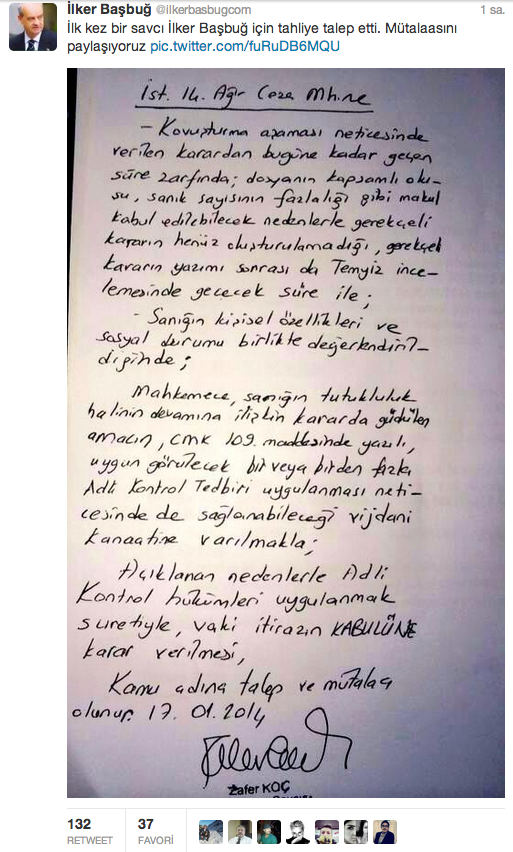 İlker Başbuğ @ilkerbasbugcom 1 sa.
İlk kez bir savcı İlker Başbuğ için tahliye talep etti. Mütalaasını
paylaşıyoruz pic.twitter.com/fuRuDB6MQU
İst. 14. Ağır Ceza Mhkme
- Kovuşturma aşaması neticesinde
verilen karardan bugüne kadar geçen
süre zarfında; dosyanın kapsamlı olu-
su, sanık sayısının fazlalığı gibi makul
kabul edilebilecek nedenlerle gerekçeli
kararın henüz oluşturulamadığı, gerekçeli
kararın yazımı sonrası da Temyiz ince-
lemesinde geçecek süre ile;
- Sanığın kişisel özellikleri ve
sosyal durumu birlikte değerlendiril-
diğinde;
Mahkemece, sanığın tutukluluk
halinin devamına ilişkin kararda güdülen
amacın, CMK 109. maddesinde yazılı,
uygun görülecek bir veya birden fazla
Adli Kontrol Tedbiri uygulanması neti-
cesinde de sağlanabileceği vijdani
kanaatine varılmakla;
Açıklanan nedenlerle Adli
Kontrol hükümleri uygulanmak
suretiyle, vaki itirazın KABULÜNE
karar verilmesi,
Kamu adına talep ve mütalaa
olunur. 17.01.2014
Zafer KOÇ
132 37
RETWEET FAVORİ